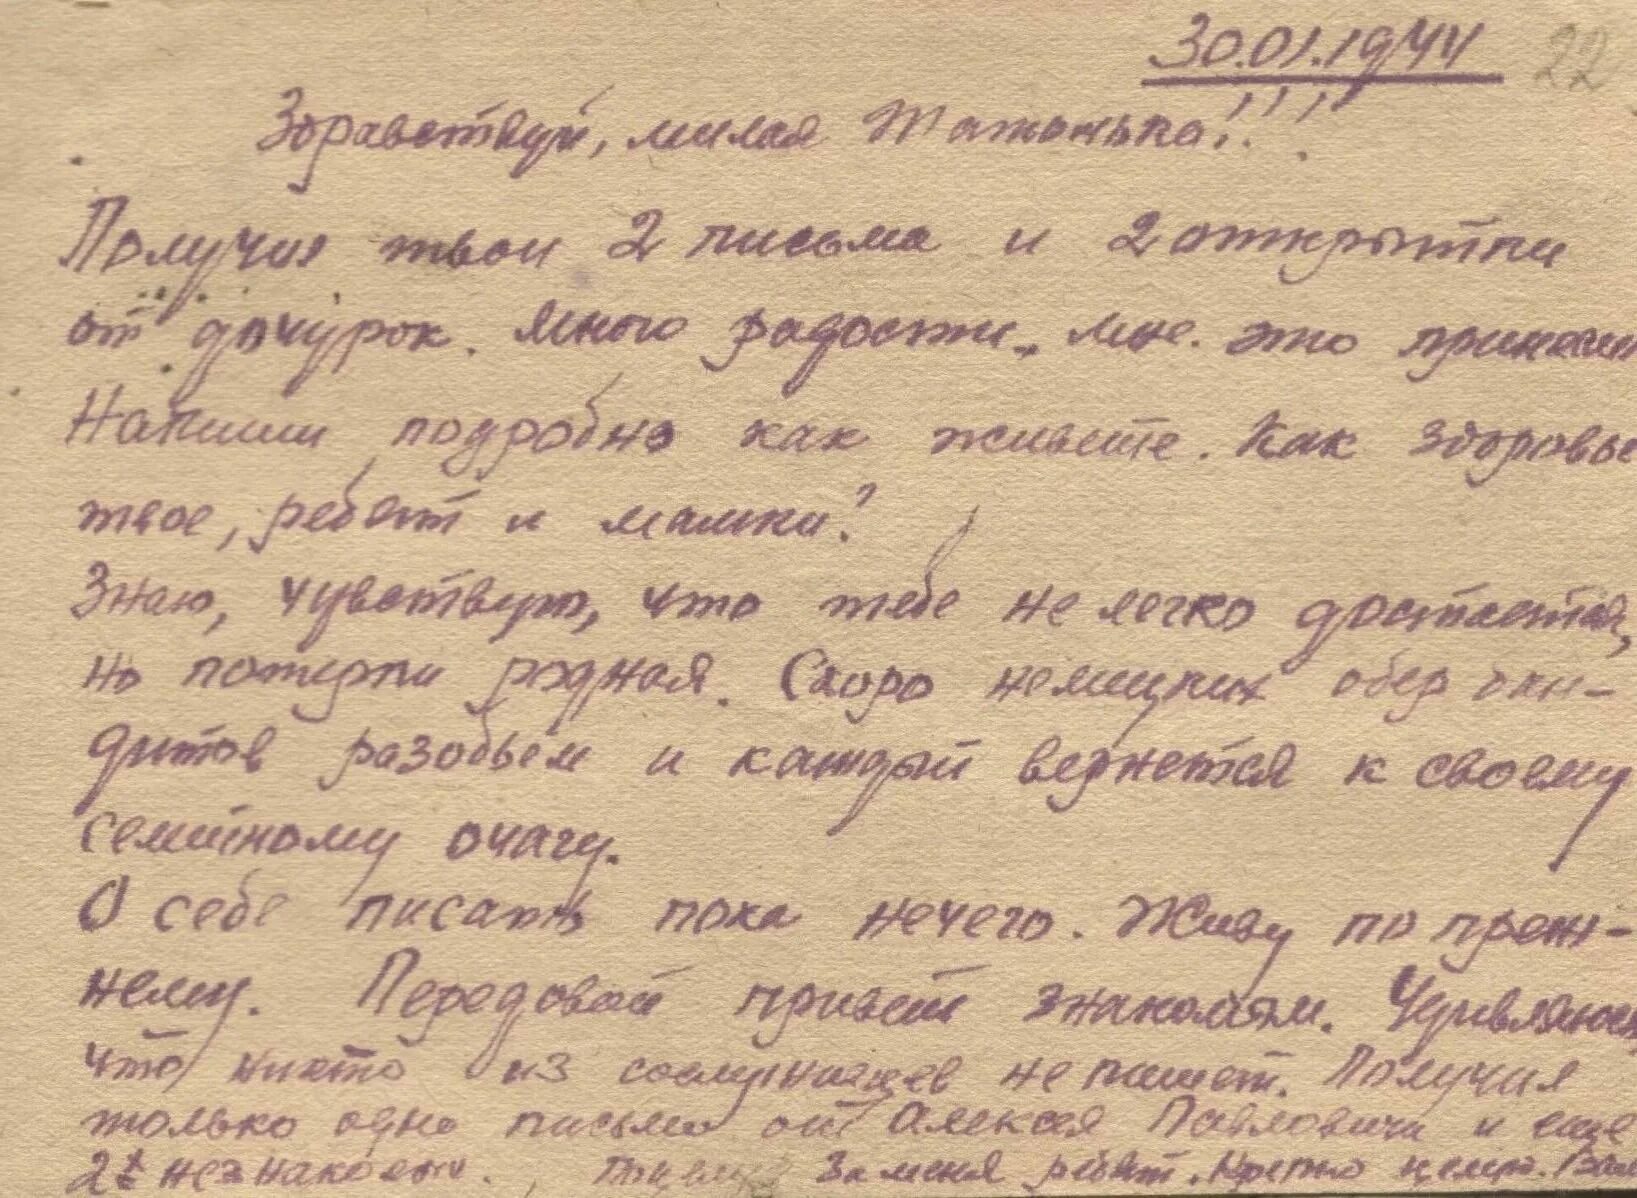 30.01.1944 22
Здравствуй, милая Татонька!!!
Получил твои 2 письма и 2 открытки
от дочурок. Много радости мне это приносит
Напиши подробно как живете. Как здоровье
твое, ребят и мамки?
Знаю, чувствую, что тебе не легко достается,
но потерпи родная. Скоро немецких обер бан-
дитов разобьем и каждый вернется к своему
семейному очагу.
О себе писать пока нечего. Живу по преж-
нему. Передавай привет знакомым. Удивляюсь,
что никто из не пишет. Получил
только одно письмо от Алексея Павловича и еще
2 незнакомых. Поцелуй за меня ребят. Крепко целую.